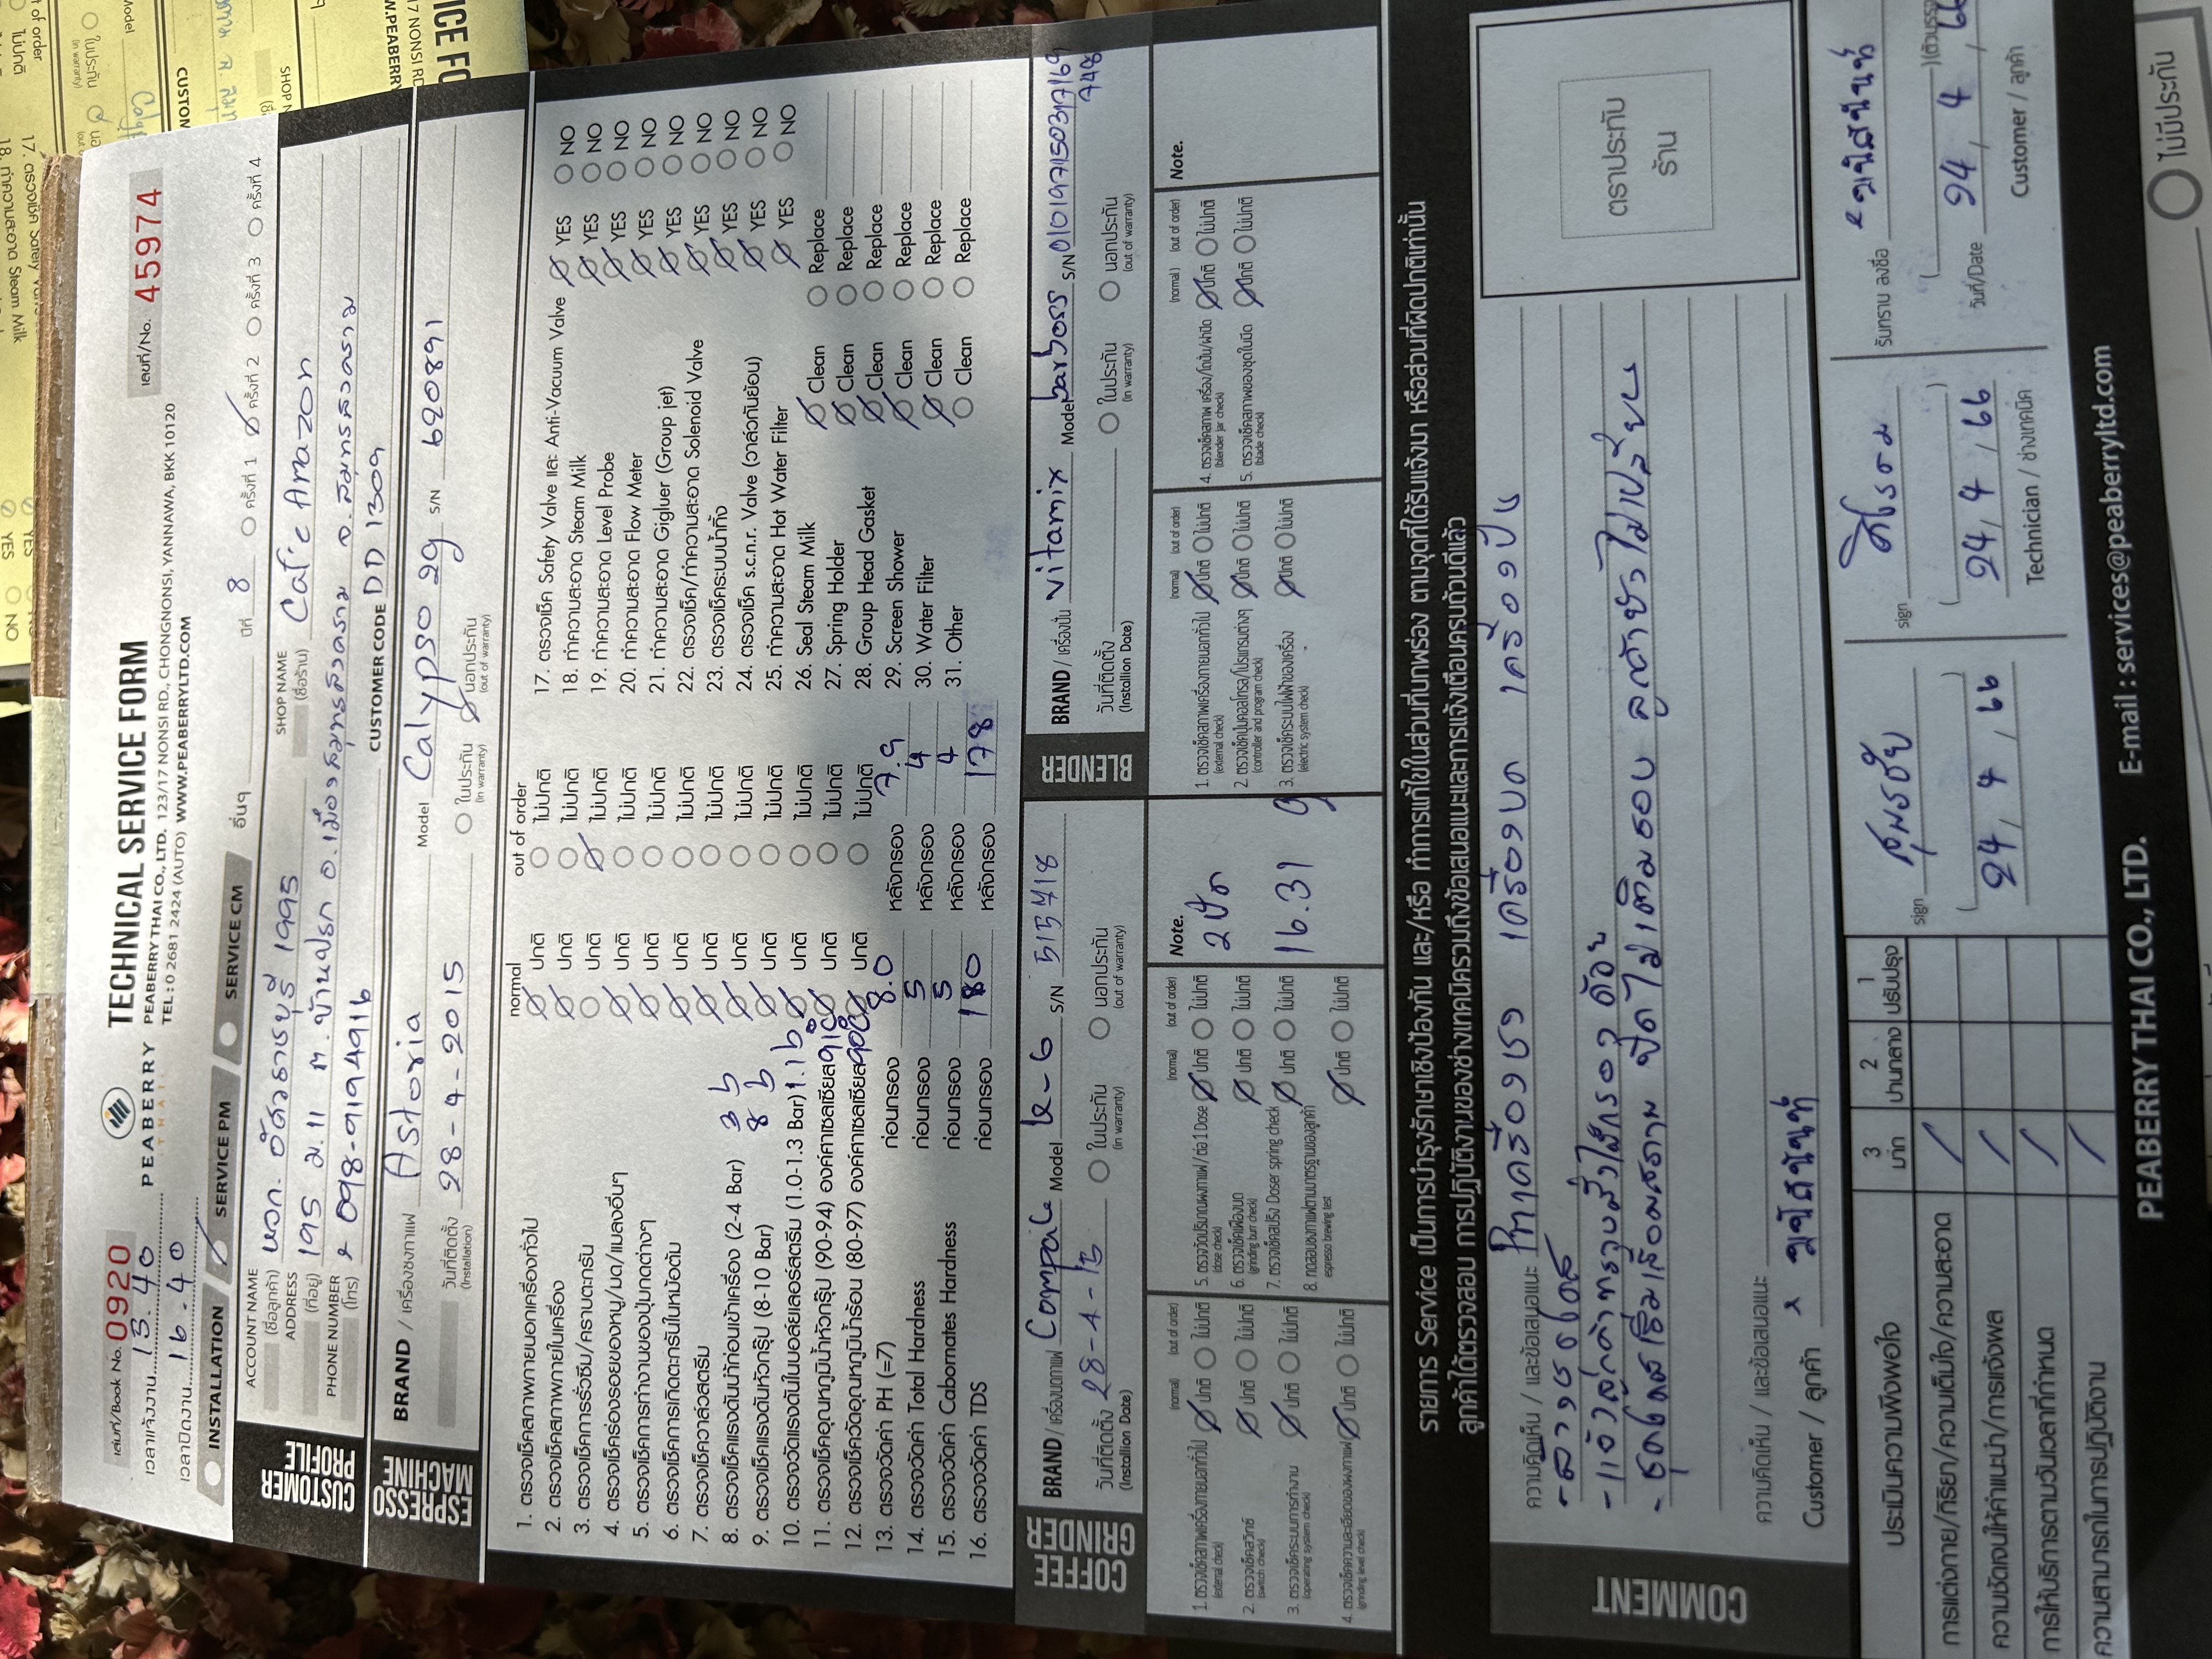 เล่มที่/Book No. 0920
เวลาแจ้งงาน 15.40
เวลาปิดงาน 16.40
PEABERRY
THAI
TECHNICAL SERVICE FORM
PEABERRY THAI CO., LTD. 123/17 NONSI RD., CHONGNONSI, YANNAWA, BKK 10120
TEL : 0 2681 2424 (AUTO) WWW.PEABERRYLTD.COM
เลขที่/No. 45974
INSTALLATION SERVICE PM SERVICE CM อื่นๆ ปีที่ 8 ครั้งที่ 1 ครั้งที่ 2 ครั้งที่ 3 ครั้งที่ 4
CUSTOMER PROFILE
ACCOUNT NAME (ชื่อลูกค้า) หจก. อัศวราชบุรี 1995 SHOP NAME (ชื่อร้าน) Cafe Amazon
ADDRESS (ที่อยู่) 195 ม.11 ต.บ้านปรก อ.เมืองสมุทรสงคราม จ.สมุทรสงคราม
PHONE NUMBER (โทร) 098-9194916 CUSTOMER CODE DD 1309
ESPRESSO MACHINE
BRAND / เครื่องชงกาแฟ Astoria Model Calypso 2g S/N 620891
วันที่ติดตั้ง (Installation) 28-4-2015 ในประกัน (in warranty) นอกประกัน (out of warranty)
normal out of order
1. ตรวจเช็คสภาพภายนอกเครื่องทั่วไป ปกติ ไม่ปกติ
2. ตรวจเช็คสภาพภายในเครื่อง ปกติ ไม่ปกติ
3. ตรวจเช็คการรั่วซึม/คราบตะกรัน ปกติ ไม่ปกติ
4. ตรวจเช็คร่องรอยของหนู/มด/แมลงอื่นๆ ปกติ ไม่ปกติ
5. ตรวจเช็คการทำงานของปุ่มกดต่างๆ ปกติ ไม่ปกติ
6. ตรวจเช็คการเกิดตะกรันในหม้อต้ม ปกติ ไม่ปกติ
7. ตรวจเช็ควาล์วสตรีม ปกติ ไม่ปกติ
8. ตรวจเช็คแรงดันน้ำก่อนเข้าเครื่อง (2-4 Bar) 3 b ปกติ ไม่ปกติ
9. ตรวจเช็คแรงดันหัวกรุ๊ป (8-10 Bar) 8 b ปกติ ไม่ปกติ
10. ตรวจวัดแรงดันในบอล์ยเลอร์สตรีม (1.0-1.3 Bar) 1.1 b ปกติ ไม่ปกติ
11. ตรวจเช็คอุณหภูมิน้ำหัวกรุ๊ป (90-94) องศาเซลเซียส 91°C ปกติ ไม่ปกติ
12. ตรวจเช็ควัดอุณหภูมิน้ำร้อน (80-97) องศาเซลเซียส 90°C ปกติ ไม่ปกติ
13. ตรวจวัดค่า PH (=7) ก่อนกรอง 8.0 หลังกรอง 7.9
14. ตรวจวัดค่า Total Hardness ก่อนกรอง 5 หลังกรอง 4
15. ตรวจวัดค่า Cabornates Hardness ก่อนกรอง 5 หลังกรอง 4
16. ตรวจวัดค่า TDS ก่อนกรอง 180 หลังกรอง 178
17. ตรวจเช็ค Safety Valve และ Anti-Vacuum Valve YES NO
18. ทำความสะอาด Steam Milk YES NO
19. ทำความสะอาด Level Probe YES NO
20. ทำความสะอาด Flow Meter YES NO
21. ทำความสะอาด Gigluer (Group jet) YES NO
22. ตรวจเช็ค/ทำความสะอาด Solenoid Valve YES NO
23. ตรวจเช็คระบบน้ำทิ้ง YES NO
24. ตรวจเช็ค s.c.n.r. Valve (วาล์วกันย้อน) YES NO
25. ทำความสะอาด Hot Water Filter YES NO
26. Seal Steam Milk Clean Replace
27. Spring Holder Clean Replace
28. Group Head Gasket Clean Replace
29. Screen Shower Clean Replace
30. Water Filter Clean Replace
31. Other Clean Replace
COFFEE GRINDER
BRAND / เครื่องบดกาแฟ Compak Model K-6 S/N 515718
วันที่ติดตั้ง (Installion Date) 28-4-15 ในประกัน (in warranty) นอกประกัน (out of warranty)
BLENDER
BRAND / เครื่องปั่น vitamix Model barboss S/N 010197150317169
748
วันที่ติดตั้ง (Installion Date) ในประกัน (in warranty) นอกประกัน (out of warranty)
(normal) (out of order)
1. ตรวจเช็คสภาพเครื่องภายนอกทั่วไป (external check) ปกติ ไม่ปกติ
2. ตรวจเช็คสวิทซ์ (switch check) ปกติ ไม่ปกติ
3. ตรวจเช็คระบบการทำงาน (operating system check) ปกติ ไม่ปกติ
4. ตรวจเช็คความละเอียดของผงกาแฟ (grinding level check) ปกติ ไม่ปกติ
(normal) (out of order)
5. ตรวจวัดปริมาณผงกาแฟ/ต่อ 1 Dose (dose check) ปกติ ไม่ปกติ
6. ตรวจเช็คเฟืองบด (grinding burr check) ปกติ ไม่ปกติ
7. ตรวจเช็คสปริง Doser spring check ปกติ ไม่ปกติ
8. ทดสอบชงกาแฟตามมาตรฐานของลูกค้า espresso brewing test ปกติ ไม่ปกติ
Note.
2 ปัด
16.31 g
(normal) (out of order)
1. ตรวจเช็คสภาพเครื่องภายนอกทั่วไป (external check) ปกติ ไม่ปกติ
2. ตรวจเช็คปุ่มคอลโทรล/โปรแกรมต่างๆ (controller and program check) ปกติ ไม่ปกติ
3. ตรวจเช็คระบบไฟฟ้าของเครื่อง (electric system check) ปกติ ไม่ปกติ
(normal) (out of order)
4. ตรวจเช็คสภาพ เครื่อง/โถปั่น/ฝาปิด (blender jar check) ปกติ ไม่ปกติ
5. ตรวจเช็คสภาพของชุดใบมีด (blade check) ปกติ ไม่ปกติ
Note.
รายการ Service เป็นการบำรุงรักษาเชิงป้องกัน และ/หรือ ทำการแก้ไขในส่วนที่บกพร่อง ตามจุดที่ได้รับแจ้งมา หรือส่วนที่ผิดปกติเท่านั้น
ลูกค้าได้ตรวจสอบ การปฏิบัติงานของช่างเทคนิครวมถึงข้อเสนอแนะและการแจ้งเตือนครบถ้วนดีแล้ว
COMMENT
ความคิดเห็น / และข้อเสนอแนะ Pmเครื่องชง เครื่องบด เครื่องปั่น
- ล้างชุดโดส
- แจ้งลูกค้าทราบสั่งไส้กรอง ด้วย
- ชุดโดสเริ่มเสื่อมสภาพ ปัดไม่เต็มรอบ ลูกค้ายังไม่เปลี่ยน
ความคิดเห็น / และข้อเสนอแนะ
Customer / ลูกค้า มนัสนันท์
ตราประทับ
ร้าน
ประเมินความพึงพอใจ 3 มาก 2 ปานกลาง 1 ปรับปรุง
การแต่งกาย/กิริยา/ความเต็มใจ/ความสะอาด
ความชัดเจนให้คำแนะนำ/การแจ้งผล
การให้บริการตามวันเวลาที่กำหนด
ความสามารถในการปฏิบัติงาน
sign สุพรชัย
24, 4, 66
sign
24, 4, 66
Technician / ช่างเทคนิค
รับทราบ ลงชื่อ มนัสนันท์
วันที่/Date 24, 4, 66
Customer / ลูกค้า
PEABERRY THAI CO., LTD. E-mail : services@peaberryltd.com
ไม่มีประกัน